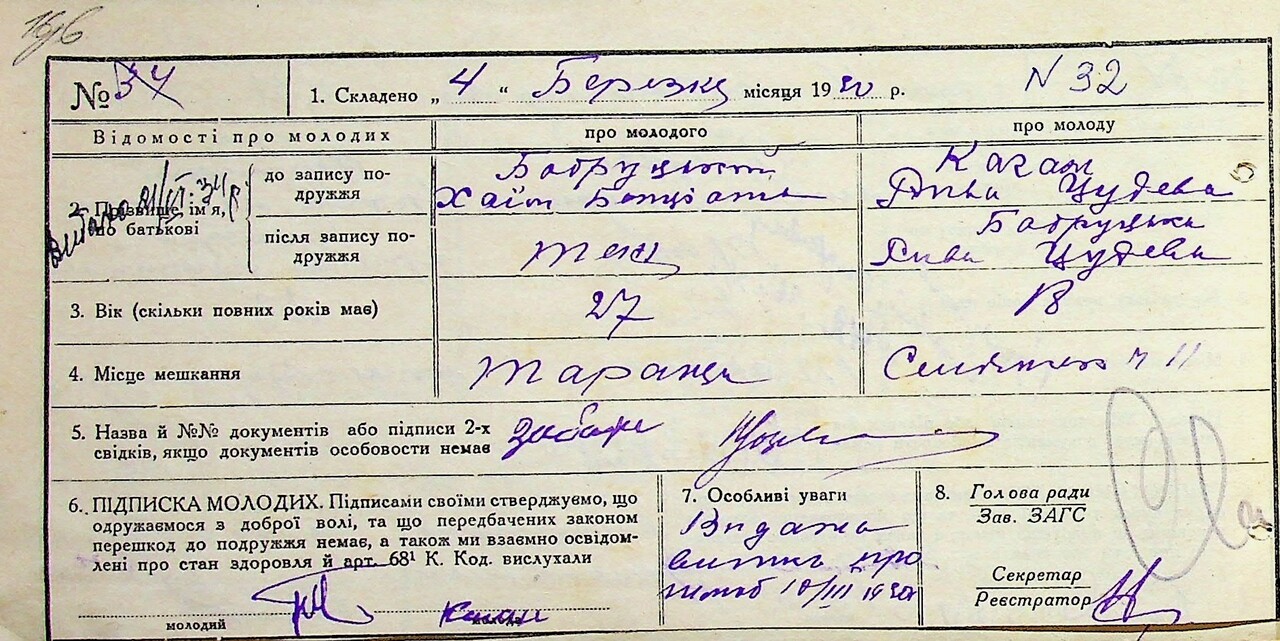 № 34
1. Складено „ 4 “ Березня місяця 1930 р.
N 32
Відомості про молодих
про молодого
про молоду
2. Прізвище, ім'я, по батькові
до запису подружжя
Бобруцький
Хаїм
Каган
Рива Цудева
після запису подружжя
так
Бобруцька
Рива Цудева
3. Вік (скільки повних років має)
27
18
4. Місце мешкання
Таращи
5. Назва й №№ документів або підписи 2-х
свідків, якщо документів особовости немає
6. ПІДПИСКА МОЛОДИХ. Підписами своїми стверджуємо, що
одружаємося з доброї волі, та що передбачених законом
перешкод до подружжя немає, а також ми взаємно освідом-
лені про стан здоровля й арт. 68¹ К. Код. вислухали
молодий
7. Особливі уваги
Видана
витка про
шлюб 10/III 1930
8. Голова ради
Зав. ЗАГС
Секретар
Реєстратор